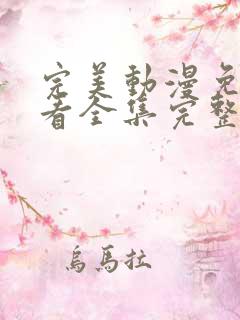 完美動漫免
看全集完整
烏馬拉